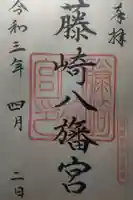 奉拝
藤崎八旛宮
令和三年 四月 二日